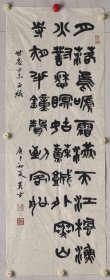 月落烏啼霜滿天江楓漁
火對愁眠姑蘇城外寒山
寺夜半鐘聲到客船
庚午初夏